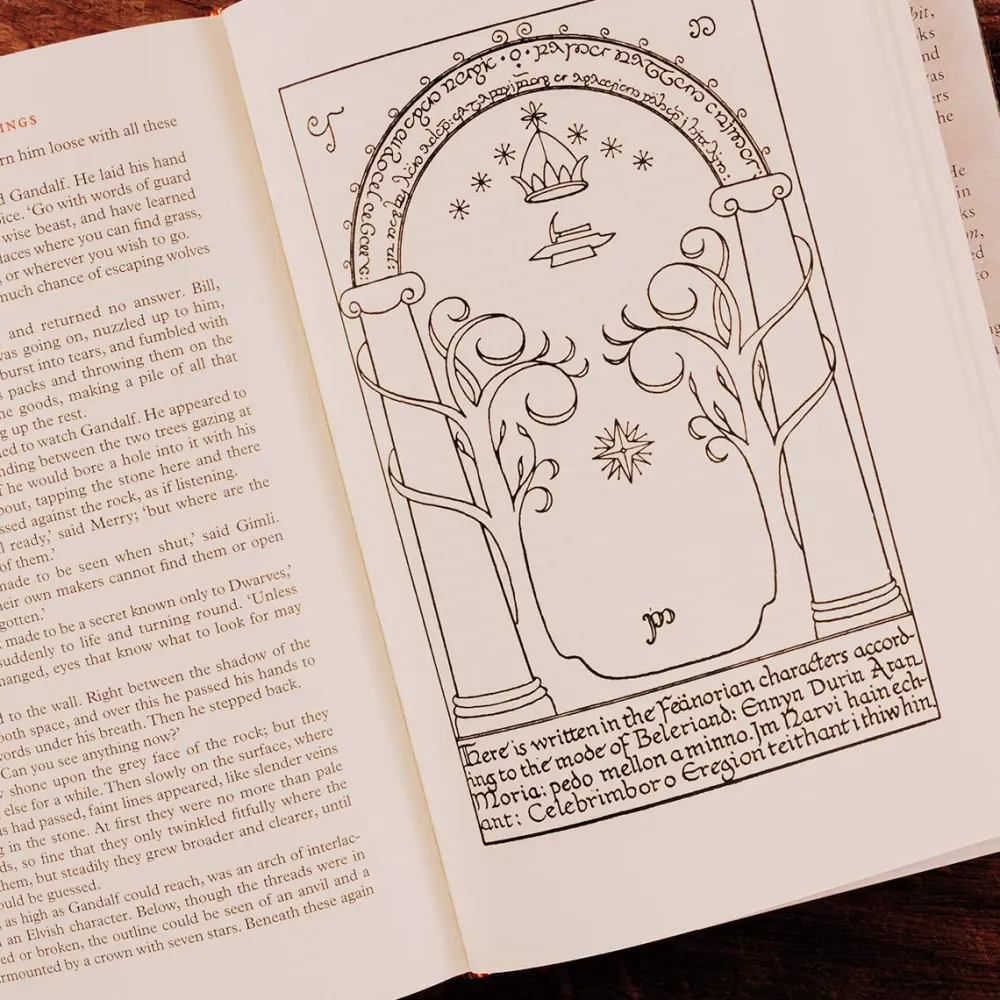 INGS
rn him loose with all these
d Gandalf. He laid his hand
oice. ‘Go with words of guard
wise beast, and have learned
laces where you can find grass,
, or wherever you wish to go.
much chance of escaping wolves
and returned no answer. Bill,
was going on, nuzzled up to him,
burst into tears, and fumbled with
s packs and throwing them on the
he goods, making a pile of all that
g up the rest.
ed to watch Gandalf. He appeared to
nding between the two trees gazing at
f he would bore a hole into it with his
bout, tapping the stone here and there
ssed against the rock, as if listening.
ready,’ said Merry; ‘but where are the
of them.’
made to be seen when shut,’ said Gimli.
heir own makers cannot find them or open
gotten.’
made to be a secret known only to Dwarves,’
suddenly to life and turning round. ‘Unless
hanged, eyes that know what to look for may
d to the wall. Right between the shadow of the
ooth space, and over this he passed his hands to
words under his breath. Then he stepped back.
Can you see anything now?’
shone upon the grey face of the rock; but they
else for a while. Then slowly on the surface, where
s had passed, faint lines appeared, like slender veins
g in the stone. At first they were no more than pale
ds, so fine that they only twinkled fitfully where the
hem, but steadily they grew broader and clearer, until
ould be guessed.
, as high as Gandalf could reach, was an arch of interlac-
an Elvish character. Below, though the threads were in
ed or broken, the outline could be seen of an anvil and a
rmounted by a crown with seven stars. Beneath these again
Here is written in the Fëanorian characters accord-
ing to the mode of Beleriand: Ennyn Durin Aran
Moria: pedo mellon a minno. Im Narvi hain ech-
ant: Celebrimbor o Eregion teithant i thiw hin.
bit,
ks
nd
was
ers
he
He
in
ks
on,
ed
to